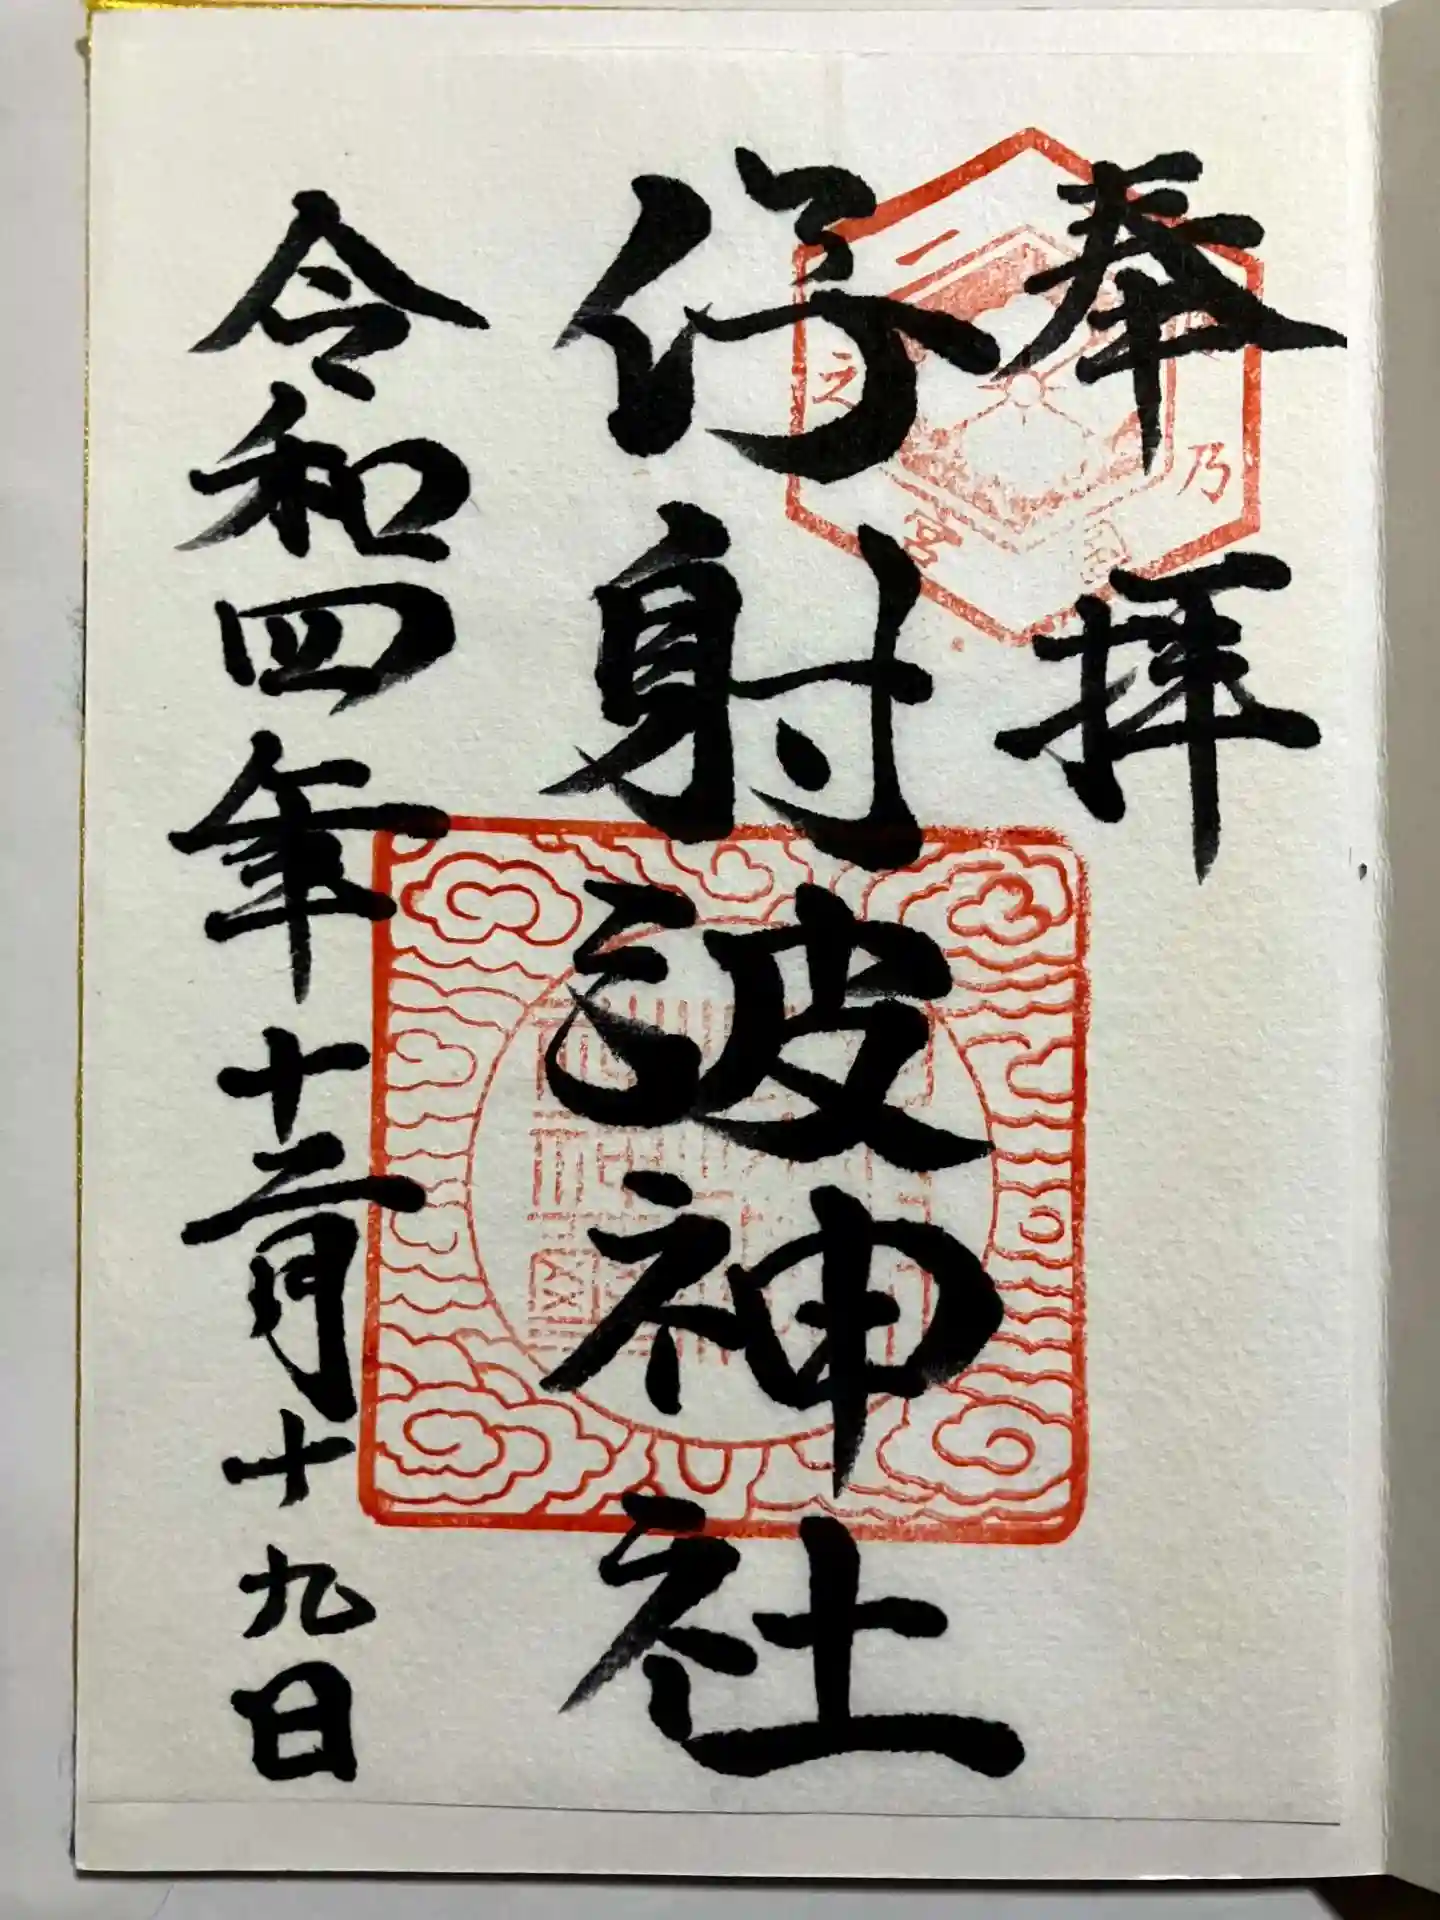 奉拝
乃国
一之宮
伊射波神社
令和四年十二月十九日